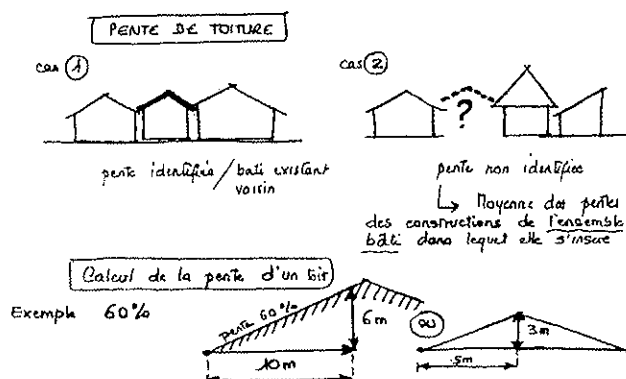 PENTE DE TOITURE
cas 1
cas 2
?
pente identifiée / bati existant
voisin
pente non identifiée
Moyenne des pentes
des constructions de l'ensemble
bâti dans lequel elle s'insère
Calcul de la pente d'un toit
Exemple 60%
pente 60%
6m
10m
ou
3m
5m